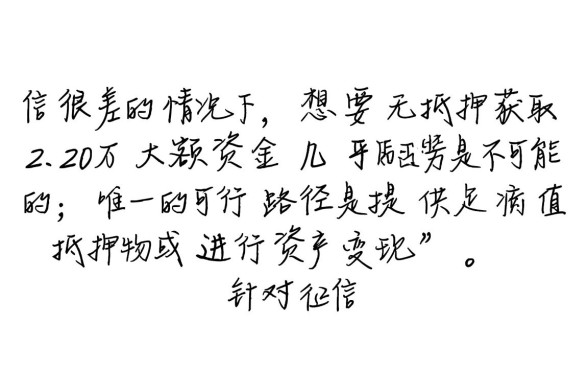 信很差的情况下，想要无抵押获取
2.20万大额资金 几乎是不可能
的；唯一的可行路径是提供足值
抵押物或进行资产变现”。
针对征信